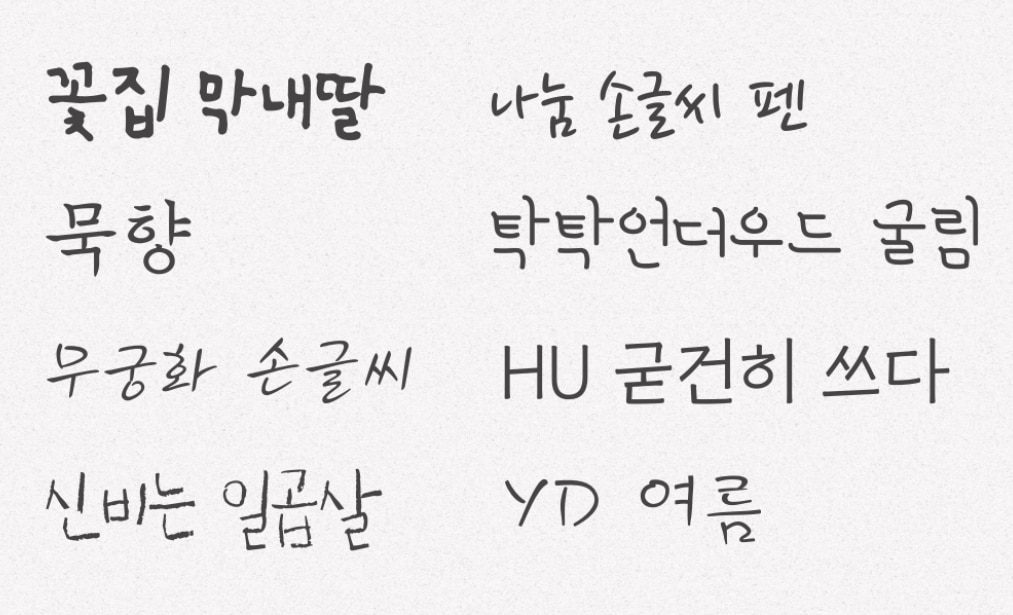 꽃집 막내딸
나눔 손글씨 펜
묵향
탁탁언더우드 굴림
무궁화 손글씨
HU 굳건히 쓰다
신비는 일곱살
YD 여름